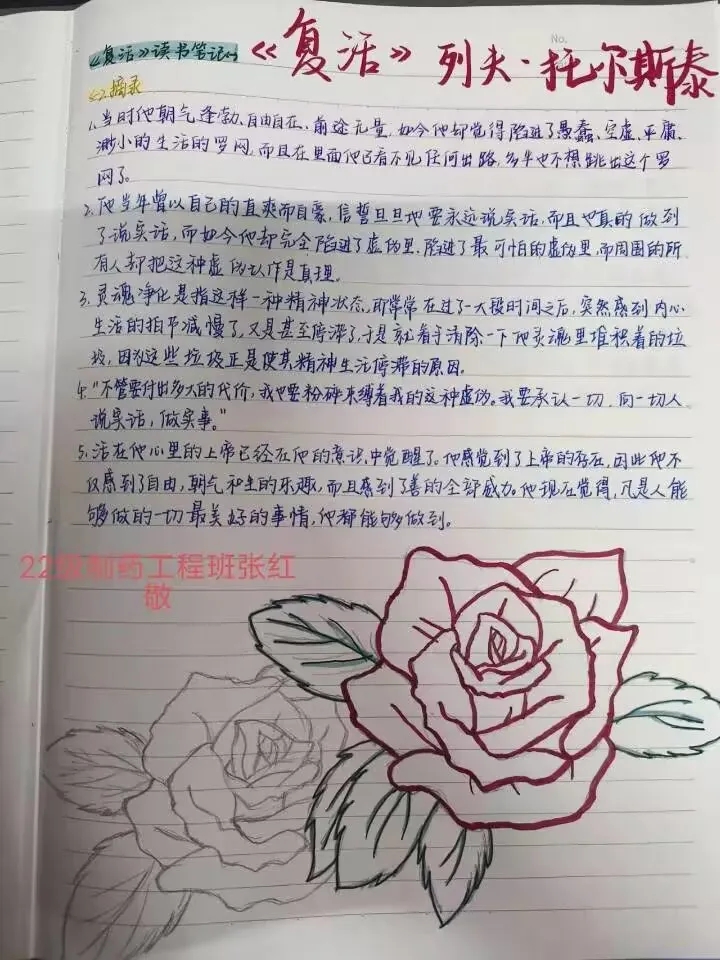 《复活》读书笔记(一)
《复活》列夫·托尔斯泰
No.
<2.摘录
1.当时他朝气蓬勃、自由自在、前途无量,如今他却觉得陷进了愚蠢、空虚、平庸、
渺小的生活的罗网,而且在里面他已看不见任何出路,多半也不想跳出这个罗
网了。
2.他当年曾以自己的直爽而自豪,信誓旦旦地要永远说实话,而且也真的做到
了说实话,而如今他却完全陷进了虚伪里,陷进了最可怕的虚伪里,而周围的所
有人却把这种虚伪认作是真理。
3.灵魂净化是指这样一种精神状态,即常常在过了一大段时间之后,突然感到内心
生活的拍节减慢了,又是甚至停滞了,于是就着手清除一下他灵魂里堆积着的垃
圾,因为这些垃圾正是使其精神生活停滞的原因。
4."不管要付出多大的代价,我也要粉碎束缚着我的这种虚伪。我要承认一切,向一切人
说实话,做实事。"
5.活在他心里的上帝已经在他的意识中觉醒了。他感觉到了上帝的存在,因此他不
仅感到了自由,朝气和生的乐趣,而且感到了善的全部威力。他现在觉得,凡是人能
够做的一切最美好的事情,他都能够做到。
22级制药工程班张红
敬